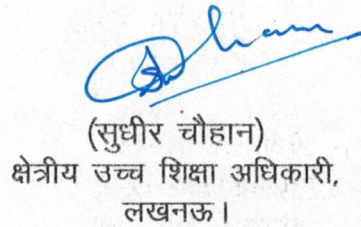 (सुधीर चौहान)
क्षेत्रीय उच्च शिक्षा अधिकारी,
लखनऊ।